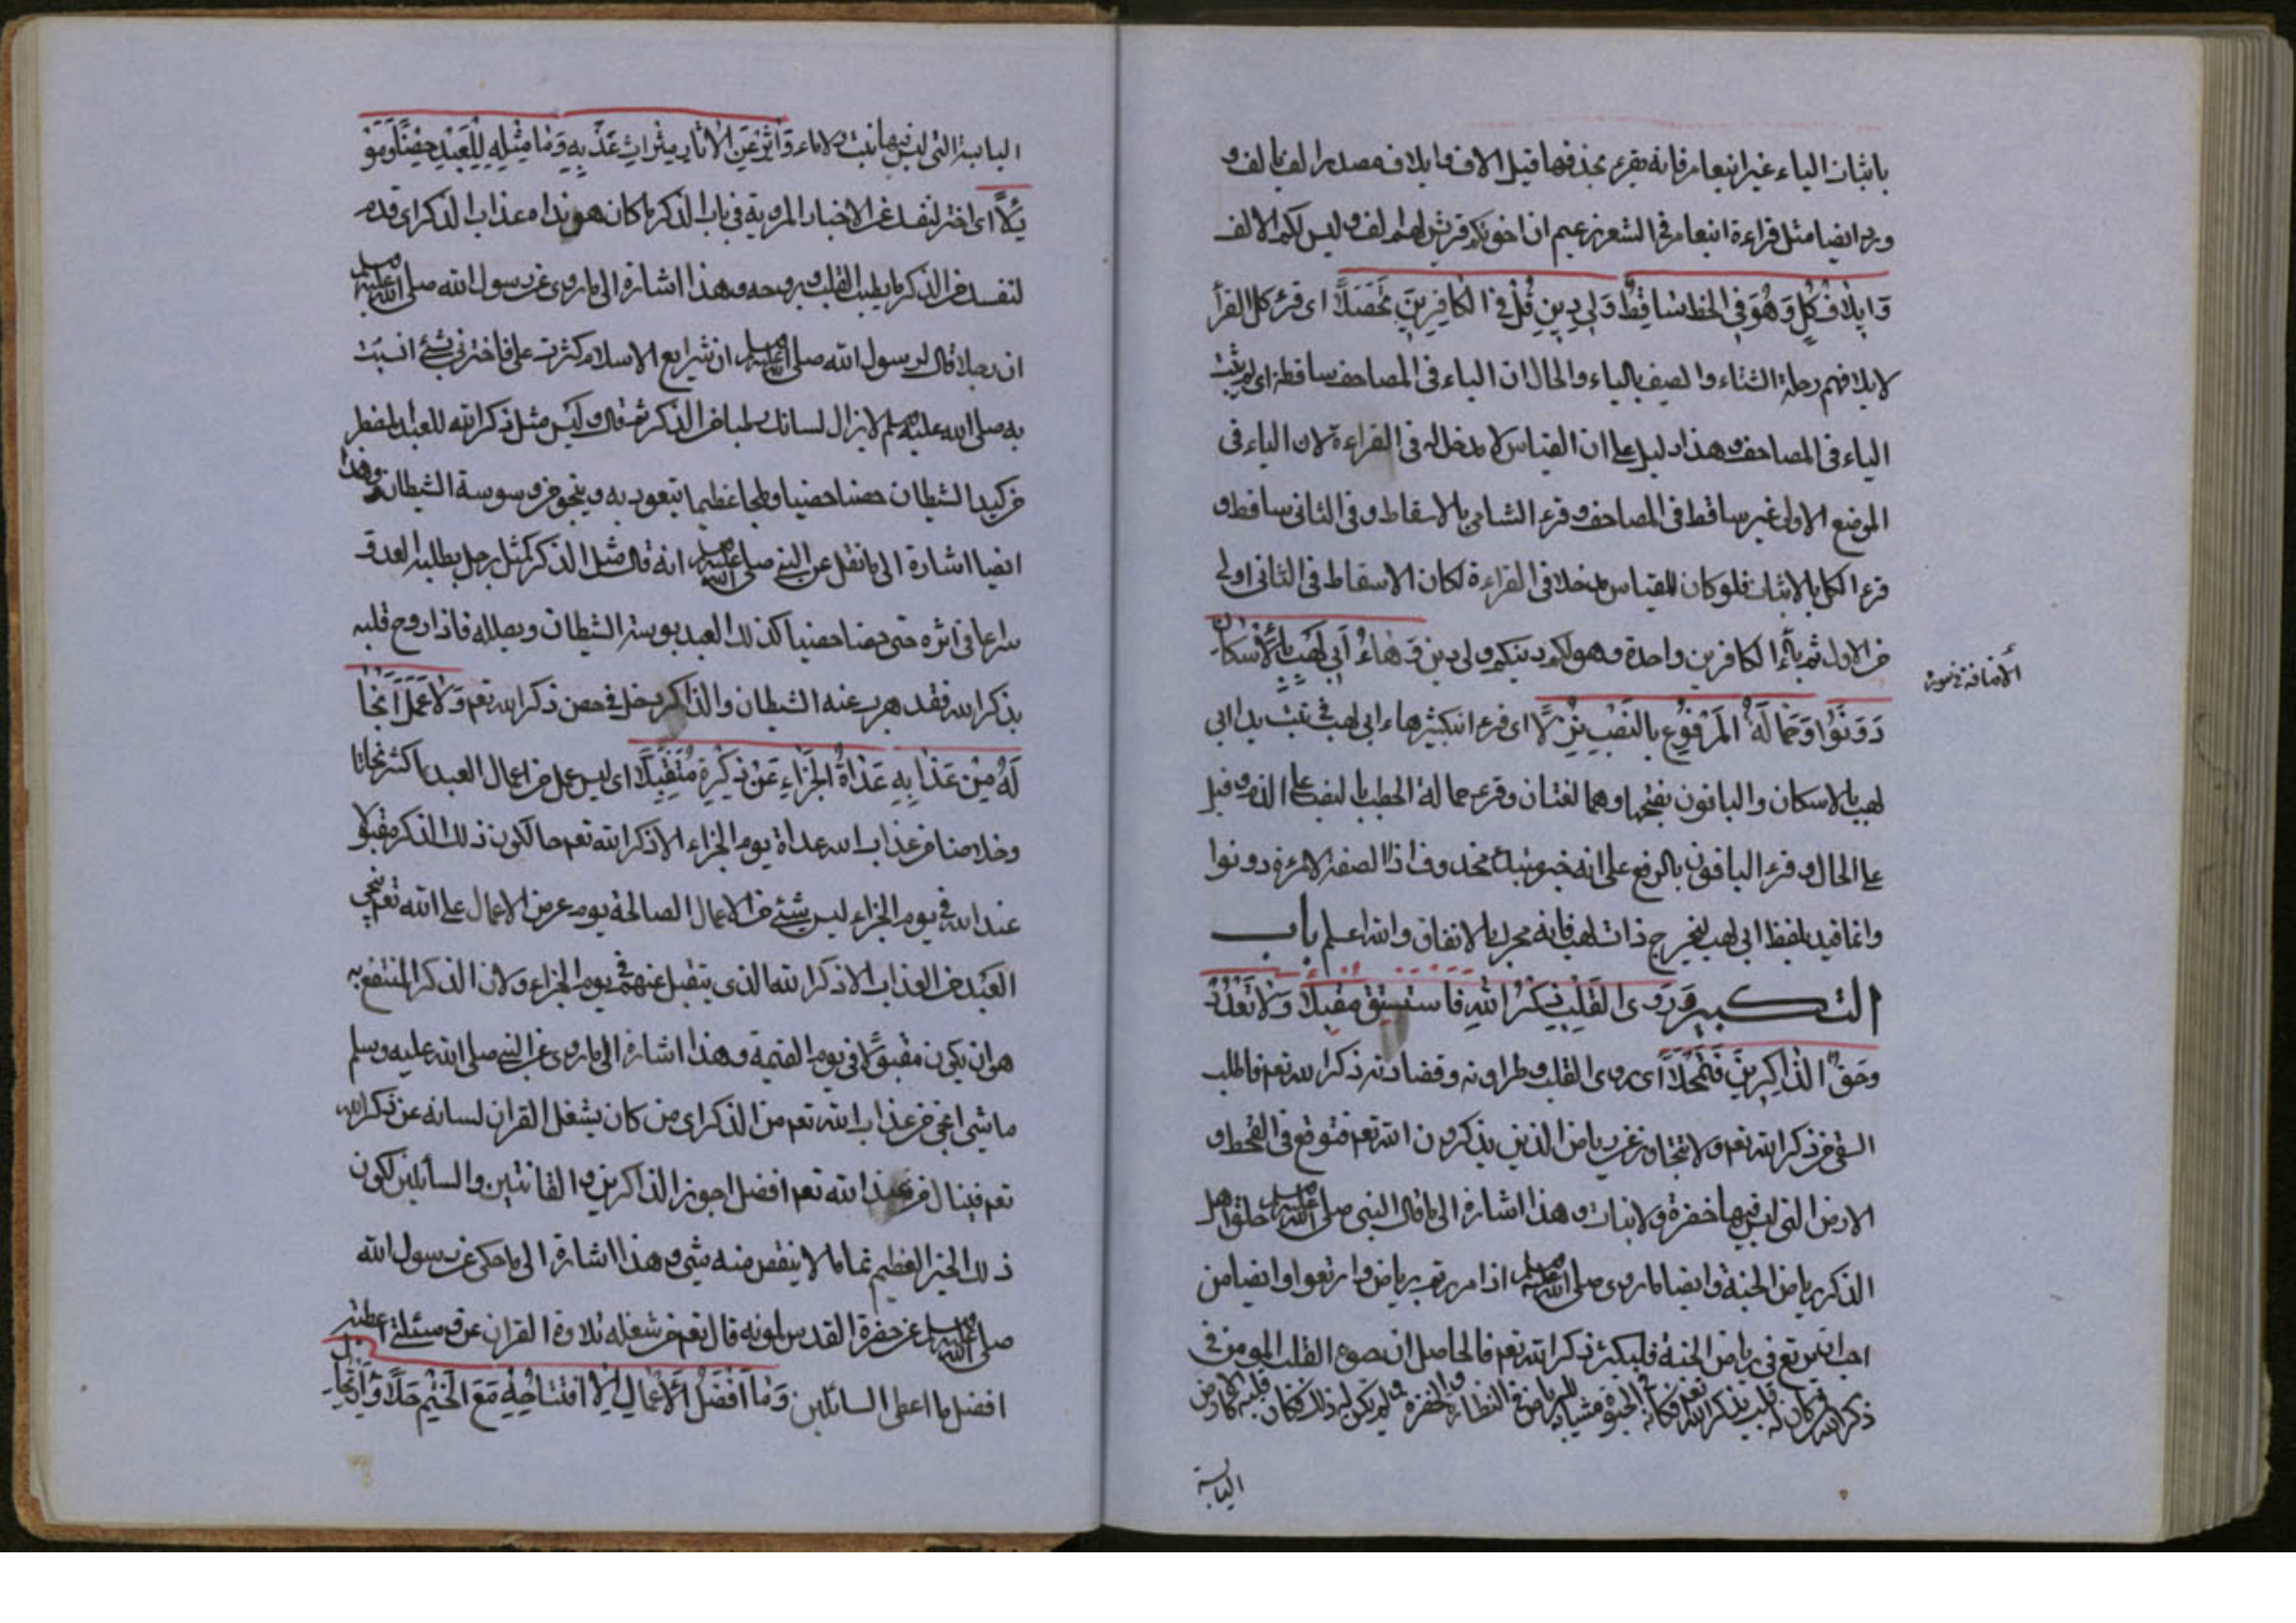 باثبات الياء غير ابن عامر فانه يقرء بحذفها قيل الاف وايلاف مصدرا الف يالف و
ورد ايضا مثل قراءة ابن عامر في الشعر زعمم ان اخوتكم قريش لهم الف وليس لكم الالف
وَاِيلَافِ كُلٍّ وَهُوَ فِي الخَطِّ سَاقِطٌ وَلِي دِينِ قُلْ فِي الكَافِرِينَ تَحَصَّلَا اى قرء كل القرأ
لايلافهم رحلة الشتاء والصيف بالياء والحال ان الياء فى المصاحف ساقطة اى لم يثبت
الياء فى المصاحف وهذا دليل على ان القياس لا مدخل له فى القراءة لان الياء فى
الموضع الاول غير ساقط فى المصاحف وقرء الشامى بالاسقاط وفى الثانى ساقط و
قرء الكل بالاثبات فلو كان للقياس مدخلا فى القراءة لكان الاسقاط فى الثانى اولى
من الاول ثم ياء الكافرين واحدة وهو لكم دينكم ولى دين وَهَاءُ اَبِي لَهْبٍ بِالْاِسْكَانِ
دَوَّنُوا وَحَمَّالَةُ المَرْفُوعُ بِالنَّصْبِ نُزِّلَا اى قرء ابن كثير هاء ابى لهب فى تبت يدا ابى
لهب بالاسكان والباقون بفتحها وهما لغتان وقرء حمالة الحطب بالنصب على الذم وقيل
على الحال وقرء الباقون بالرفع على انه خبر مبتدأ محذوف اذا لصفة لامرءة دونوا
وانما قيد بلفظ ابى لهب ليخرج ذات لهب فانه محرك بالاتفاق والله اعلم بأب
التكبير رَوَى القَلْبِ ذِكْرُ اللهِ فَاسْتَسْقِ مُقْبِلَا وَلَا تَعْدُ
رَوْضَ الذَّاكِرِينَ فَتُمْحِلَا اى روى القلب وطراوته وقضادته ذكر الله تعم فاطلب
السقى من ذكر الله تعم ولا تتجاوز عن رياض الذين يذكرون الله تعم فتوقع فى القحط و
الارض التى ليس فيها خضرة ولا نبات وهذا اشارة الى ما قال النبى صلى الله عليه وسلم حلق اهل
الذكر رياض الجنة وايضا لما روى صلى الله عليه وسلم اذا مررتم برياض وارتعوا وايضا من
احب ان يرتع فى رياض الجنة فليكثر ذكر الله تعم فالحاصل ان يصوه القلب المومن فى
ذكر الله من كان له قلب بذكر الله تعم فكانه الجنة مشابه للرياض فى النظارة والخضرة ولم يكن له ذلك فكان قلبه كالارض
اليابسة
الاضافة فى سورة
اليابسة التى ليس فيها نبت ولا ماء وَآثِرْ عَنِ الْآثَارِ مَثْرَاتِ عَذْبِهِ وَمَا مِثْلُهُ لِلْعَبْدِ حِصْنًا وَمَوْ
ئِلَا اى اختر لنفسك عن الاخبار المروية فى باب الذكر ما كان هو نداه عذاب الذكر اى قدم
لنفسك من الذكر ما يطيب القلب وبروحه وهذا اشارة الى ما روى عن رسول الله صلى الله عليه وسلم
ان رجلا قال لرسول الله صلى الله عليه وسلم ان شرايع الاسلام كثرت على فاخبرنى بشئ اتشبت
به صلى الله عليه وسلم لا يزال لسانك رطبا من الذكر ثم قال وليس مثل ذكر الله للعبد المضطر
من كيد الشيطان حصنا حصينا وملجا عظيما يتعوذ به وينجو من وسوسة الشيطان وهذا
ايضا اشارة الى ما نقل عن النبى صلى الله عليه وسلم انه قال مثل الذكر كمثل رجل يطلبه العدو
سراعا فى اثره حتى حصنا حصينا كذلك العبد يوسته الشيطان ويصلاله فاذا روح قلبه
بذكر الله فقد هرب عنه الشيطان والذاكر يدخل فى حصن ذكر الله تعم وَلَا عَمَلٌ اَنْجَا
لَهُ مِنْ عَذَابِهِ غَدَاةَ الجَزَاءِ مِنْ ذِكْرِهِ مُتَقَبَّلَا اى ليس عمل من اعمال العبد ما كثر نجاتا
وخلاصنا من عذاب الله غداة يوم الجزاء الا ذكر الله تعم حالكون ذلك الذكر مقبولا
عند الله فى يوم الجزاء ليس شئ من الاعمال الصالحة يوم عرض الاعمال على الله تعم ينجى
العبد من العذاب الا ذكر الله الذى يتقبل عنهم فى يوم الجزاء ولان الذكر المنتفع به
هو ان يكون مقبولا فى يوم القيمة وهذا اشارة الى ما روى عن النبى صلى الله عليه وسلم
ما شى انجى من عذاب الله تعم من الذكر اى من كان يشغل القران لسانه عن ذكر الله
تعم فينال من عند الله تعم افضل اجوز الذاكرين والقانتين والسائلين لكون
ذلك الخير العظيم تماما لا ينقص منه شى وهذا اشارة الى ما حكى عن رسول الله
صلى الله عليه وسلم عن حضرة القدس لمونه قال تعم من شغله تلاوة القران عن مسئلتى اعطيته
افضل ما اعطى السائلين وَمَا اَفْضَلُ الْاَعْمَالِ اِلَّا افْتِتَاحُهُ مَعَ الخَتْمِ حَلًّا وَارْتِحَا